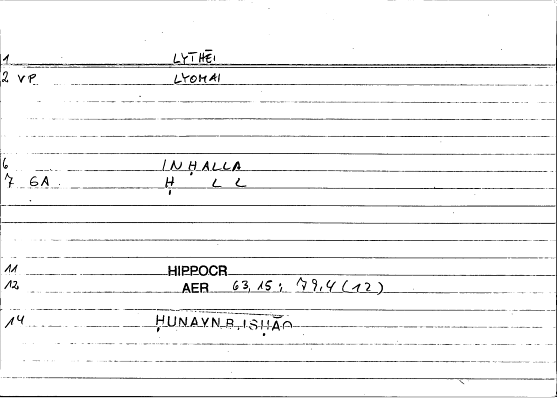 1 LYTHĒI
2 VP LYOMAI
6 INḤALLA
7 GA Ḥ L L
11 HIPPOCR
12 AER 63,15; 79,4 (12)
14 ḤUNAYN B. ISḤĀQ